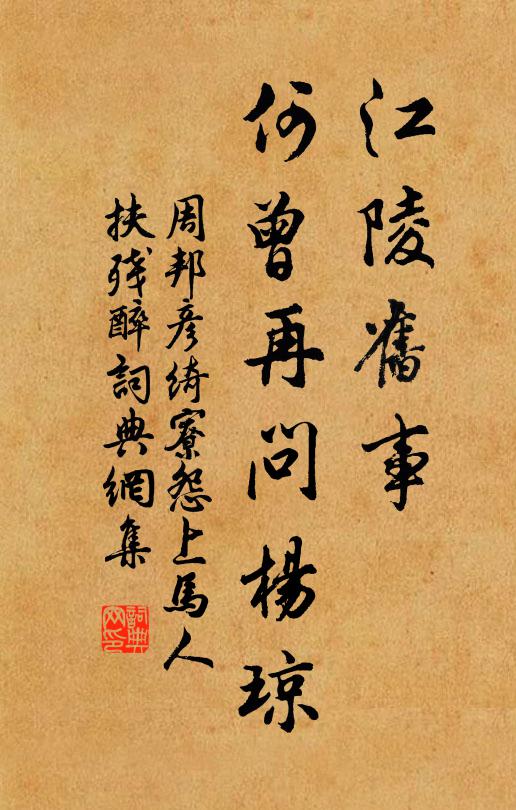 江陵舊事
何曾再問楊琼
周邦彦綺寮怨上馬人
扶殘醉詞典網集
詞典
网印